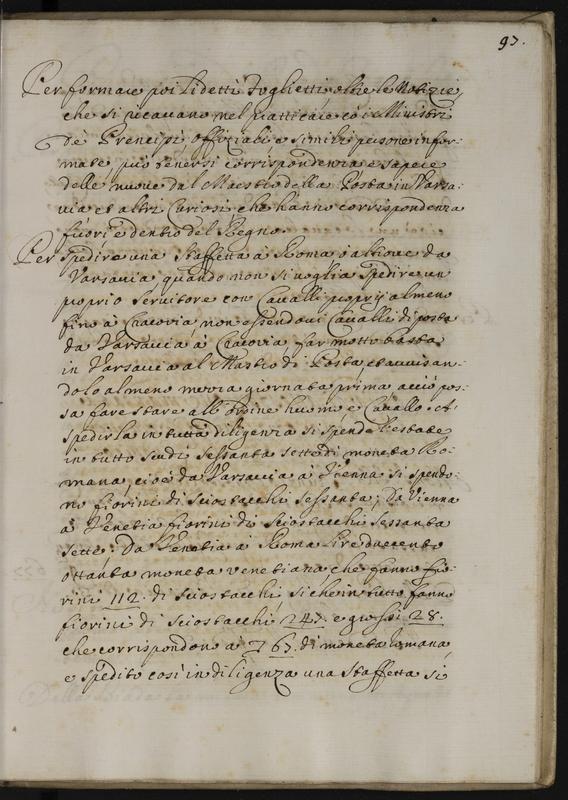 97.
Per formare poi li detti Foglietti, oltre le Notizie,
che si ricavano nel pratticare co i Ministri
de Prencipi offitiali e simili persone infor-
mate, può tenersi corrispondenza e sapere
delle nuove dal Maestro della Posta in Varsa-
via et altri Curiosi, che hanno corrispondenza
fuori e dentro del Regno.
Per spedire una Staffetta à Roma ò altrove da
Varsavia quando non si voglia spedire un
proprio servitore con Cavalli proprij almeno
fino à Cracovia non essendovi Cavalli di posta
da Varsavia à Cracovia far motto basta
in Varsavia al Mastro di Posta et avvisan-
dolo almeno mezza giornata prima acciò pos-
sa fare stare all'ordine huomo e Cavallo. A
spedirla in tutta diligenza si spende l'estate
in tutto scudi sessanta sette di moneta Ro-
mana, cioè da Varsavia à Vienna si spendo-
no fiorini di Sciostacchi sessanta; Da Vienna
à Venetia fiorini di Sciostacchi sessanta
sette: Da Venetia à Roma lire duecento
ottanta moneta venetiana che fanno fio-
rini 112. di Sciostacchi, si che in tutto fanno
fiorini di Sciostacchi 247. e grossi 28.
che corrispondono ai 67. di moneta romana,
e spedito così in diligenza una Staffetta si